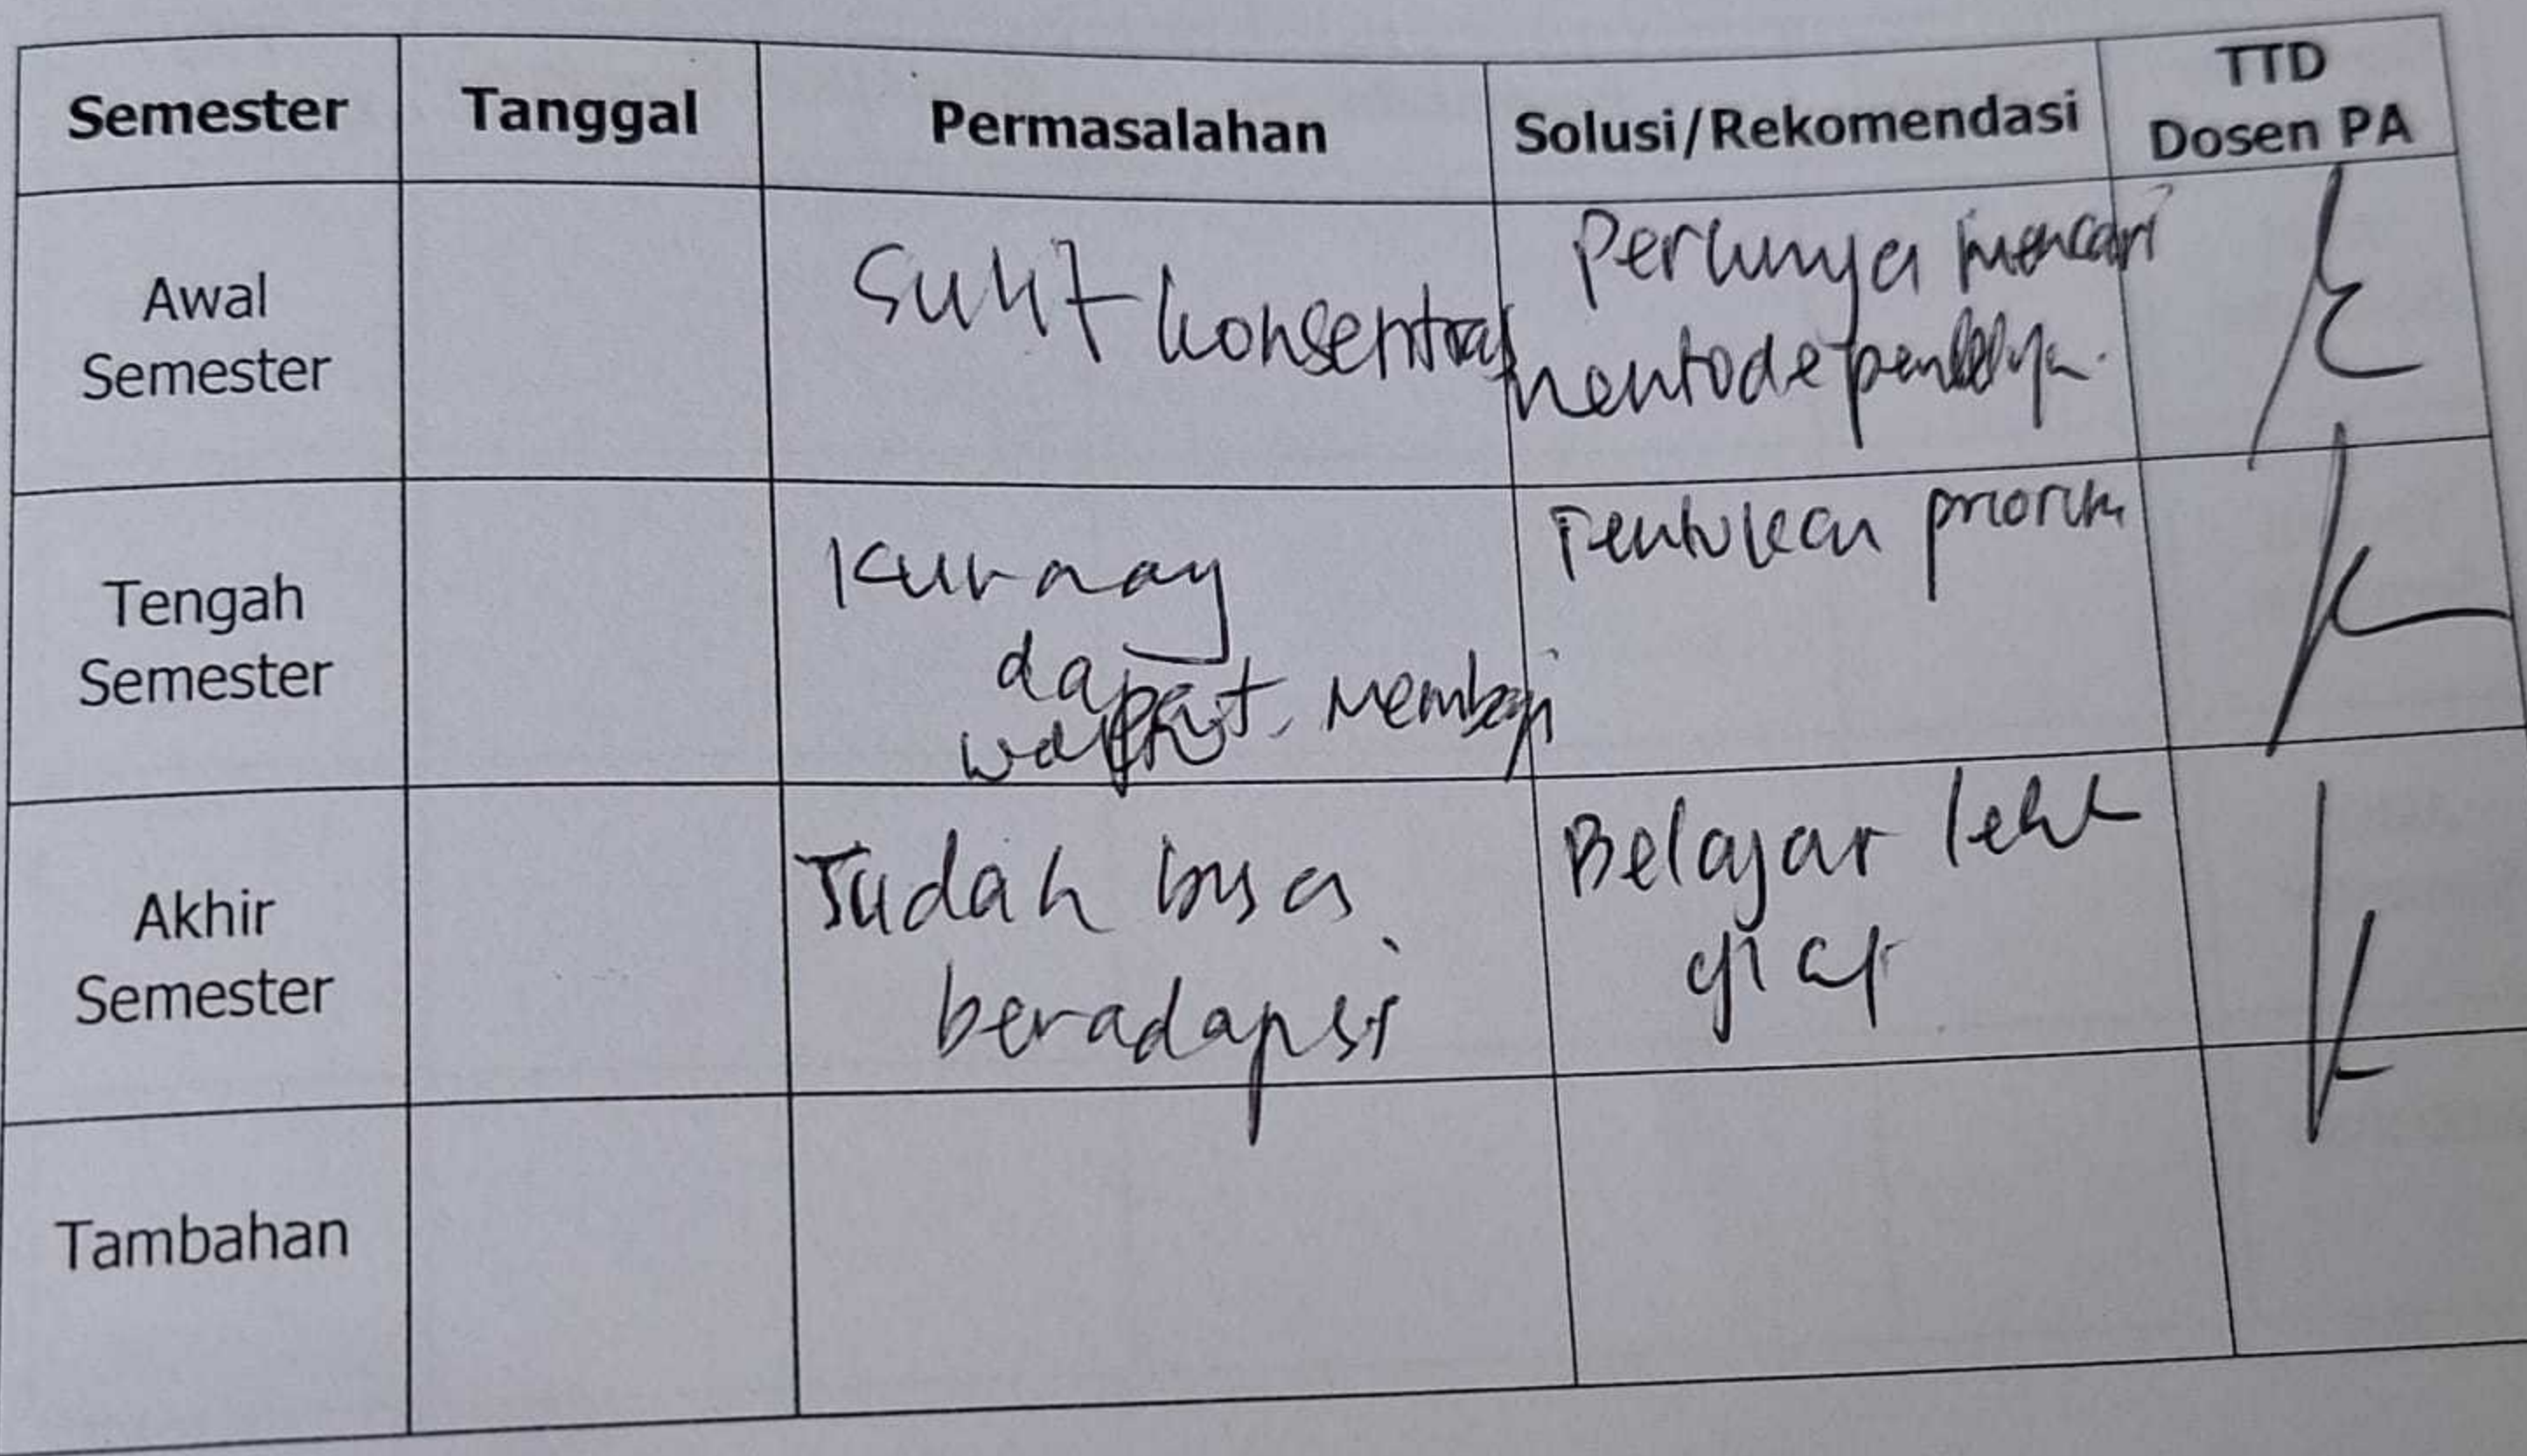 Semester Tanggal Permasalahan Solusi/Rekomendasi TTD
Dosen PA
Awal
Semester
Sulit konsentrasi
Perlunya mencari
mentode
Tengah
Semester
Kurang
dapat membagi
waktu
Tentukan
Akhir
Semester
Sudah bisa
beradapsi
Belajar lebih
giat
Tambahan